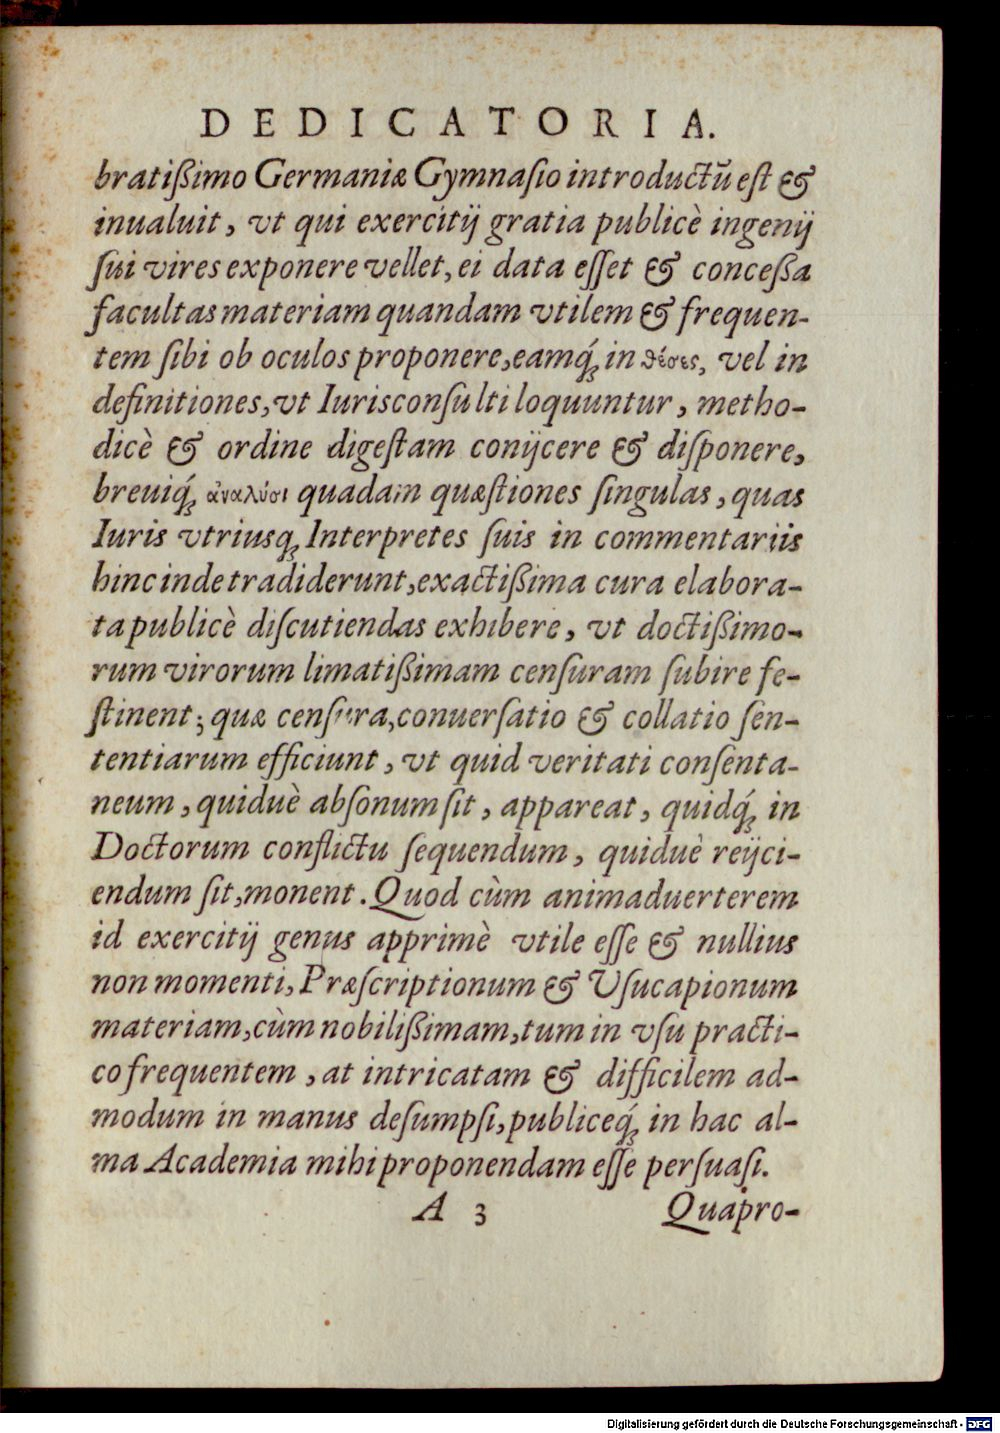 DEDICATORIA.
bratißimo Germaniæ Gymnaſio introductũ eſt &
inualuit, vt qui exercitij gratia publicè ingenij
ſui vires exponere vellet, ei data eſſet & conceßa
facultas materiam quandam vtilem & frequen-
tem ſibi ob oculos proponere, eamq́; in θέσεις, vel in
definitiones, vt Iurisconſulti loquuntur, metho-
dicè & ordine digeſtam conijcere & diſponere,
breuiq́; ἀναλύσι quadam quæſtiones ſingulas, quas
Iuris vtriusq; Interpretes ſuis in commentariis
hinc inde tradiderunt, exactißima cura elabora-
ta publicè diſcutiendas exhibere, vt doctißimo-
rum virorum limatißimam cenſuram ſubire fe-
ſtinent; quæ cenſura, conuerſatio & collatio ſen-
tentiarum efficiunt, vt quid veritati conſenta-
neum, quiduè abſonum ſit, appareat, quidq́; in
Doctorum conflictu ſequendum, quiduè reijci-
endum ſit, monent. Quod cùm animaduerterem
id exercitij genus apprimè vtile eſſe & nullius
non momenti, Præſcriptionum & Vſucapionum
materiam, cùm nobilißimam, tum in vſu practi-
co frequentem, at intricatam & difficilem ad-
modum in manus deſumpſi, publiceq́; in hac al-
ma Academia mihi proponendam eſſe perſuaſi.
A 3 Quapro-
Digitalisierung gefördert durch die Deutsche Forschungsgemeinschaft - DFG